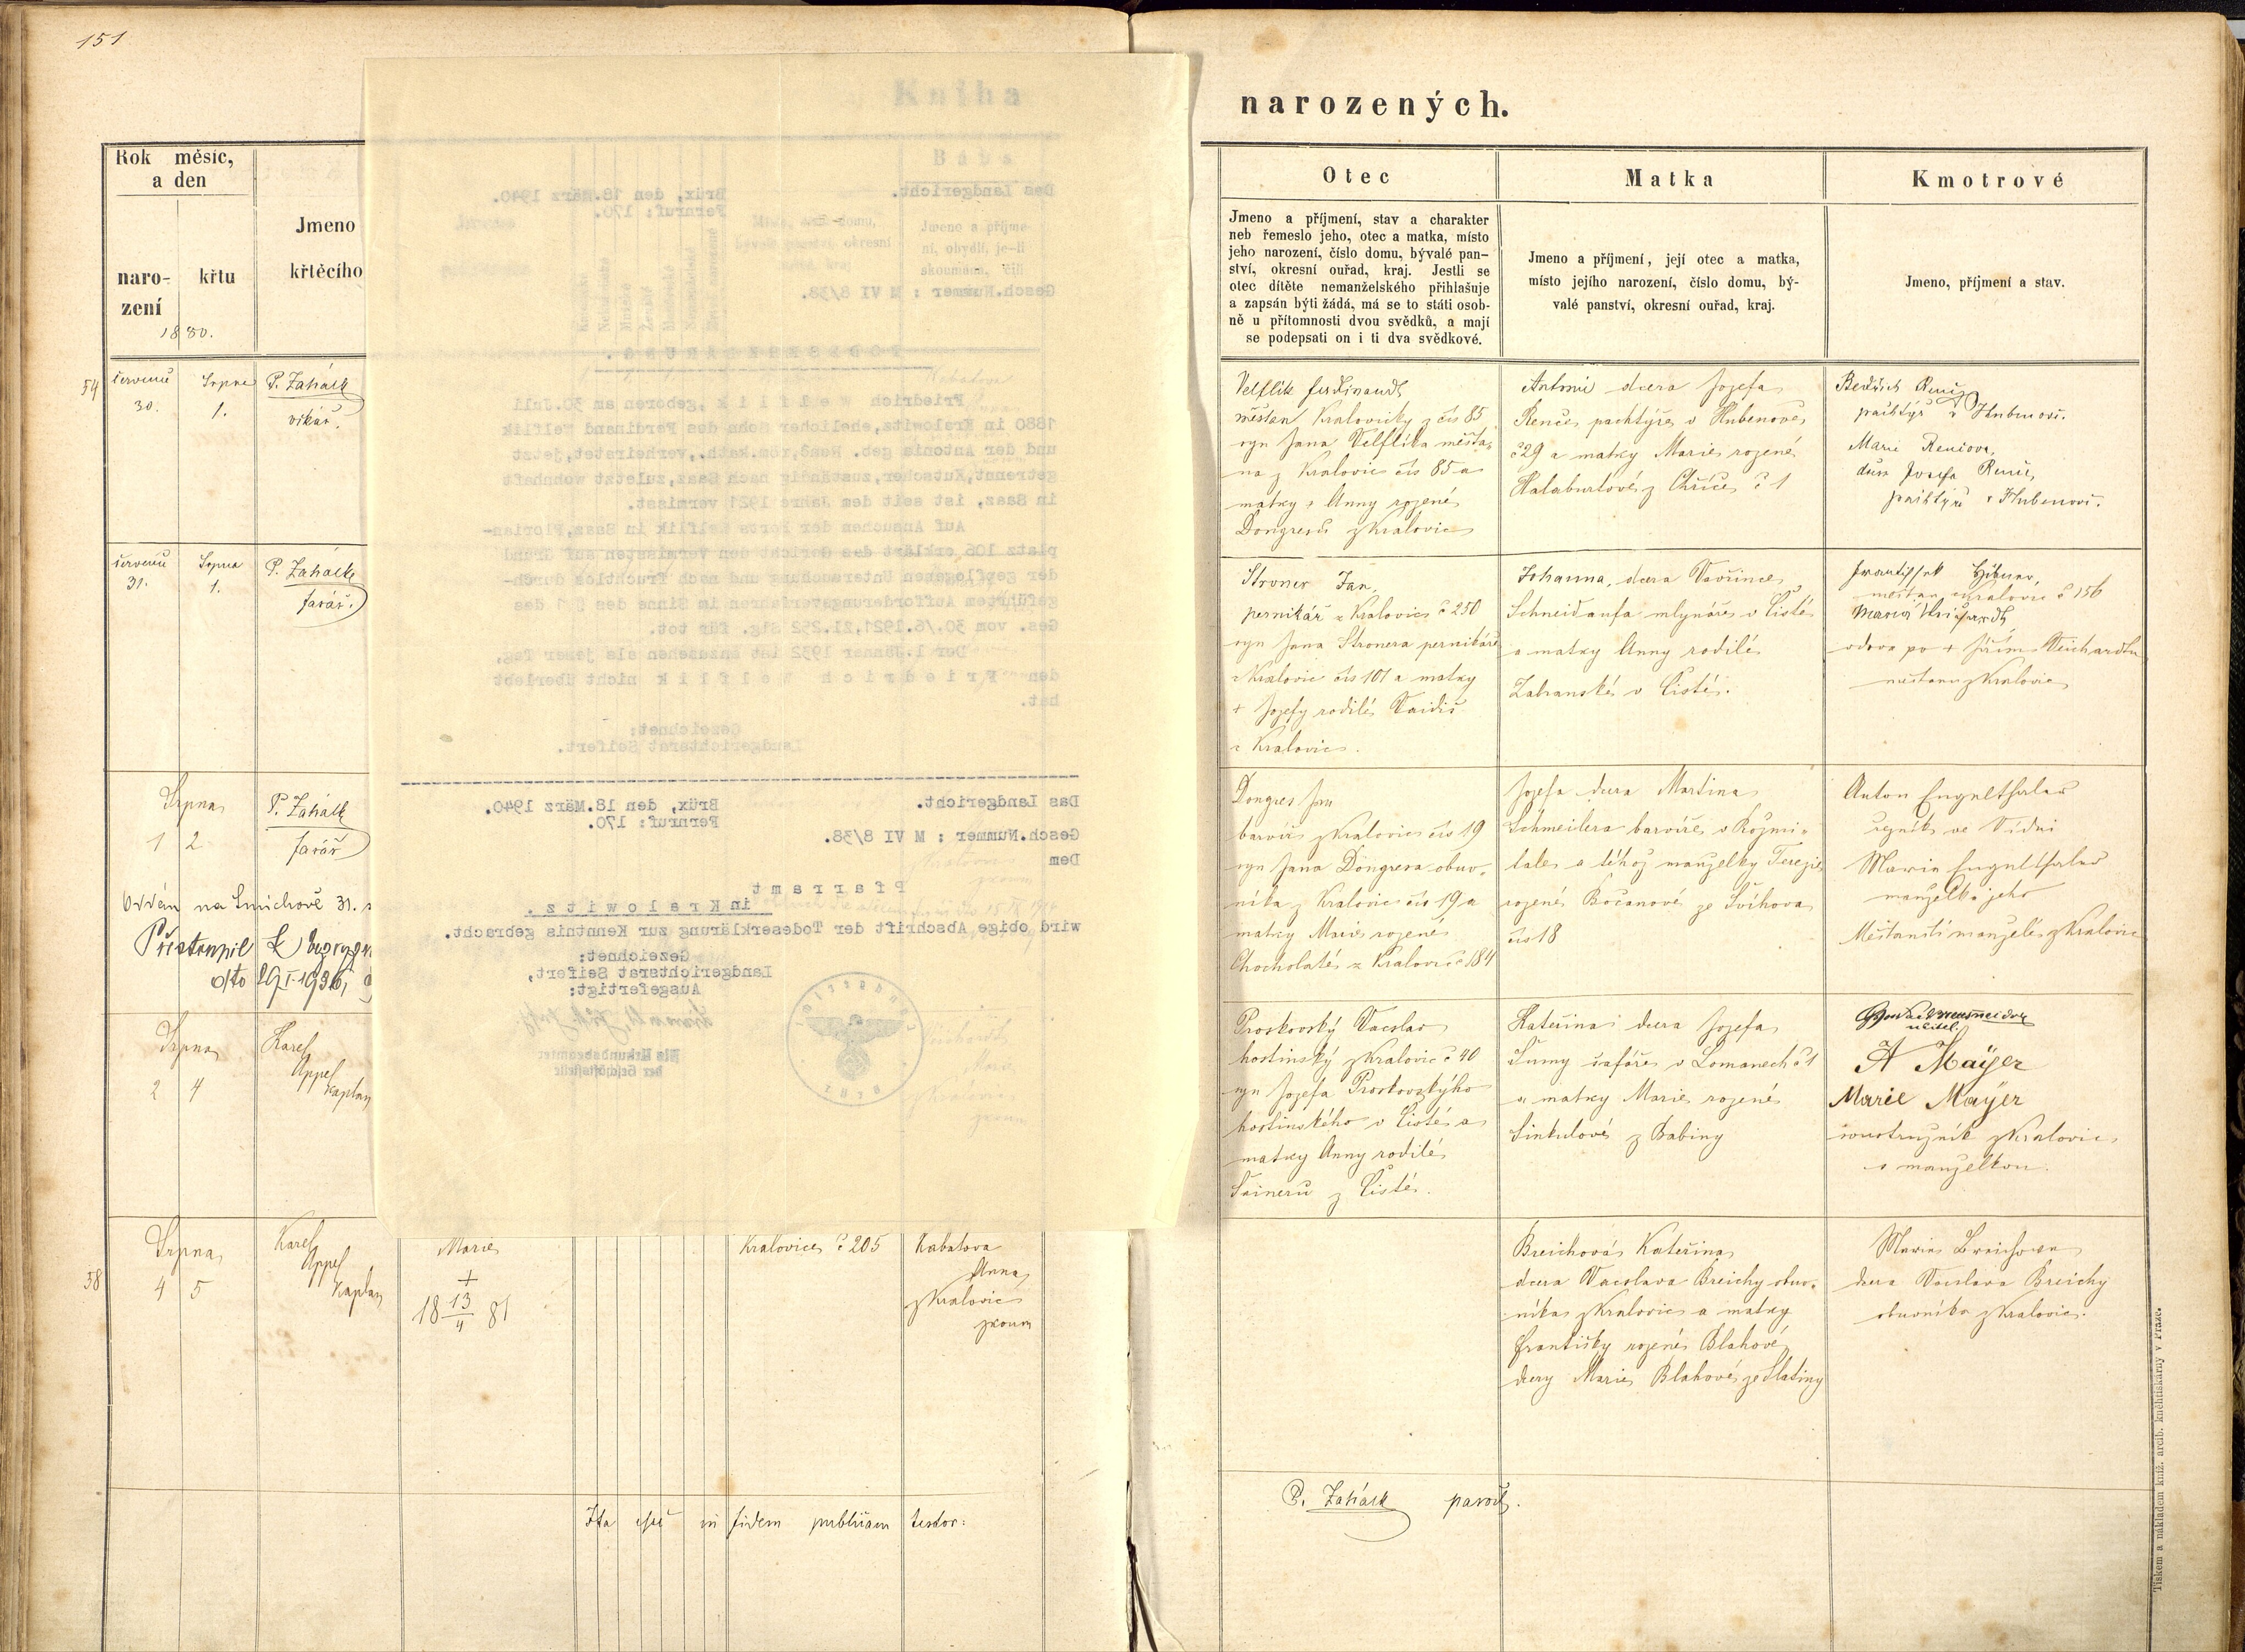 151
Kniha
narozených.
Rok měsíc,
a den
naro-
zení
křtu
1880.
Jmeno
křtěcího
Otec
Jmeno a příjmení, stav a charakter
neb řemeslo jeho, otec a matka, místo
jeho narození, číslo domu, bývalé pan-
ství, okresní ouřad, kraj. Jestli se
otec dítěte nemanželského přihlašuje
a zapsán býti žádá, má se to státi osob-
ně u přítomnosti dvou svědků, a mají
se podepsati on i ti dva svědkové.
Matka
Jmeno a příjmení, její otec a matka,
místo jejího narození, číslo domu, bý-
valé panství, okresní ouřad, kraj.
Kmotrové
Jmeno, příjmení a stav.
Das Landgericht.
Brüx, den 18.März 1940.
Fernruf: 170.
Gesch.Nummer : M VI 8/38.
TODESERKLÄRUNG.
Friedrich Welflik, geboren am 30.Juli
1880 in Kralowitz, ehelicher Sohn des Ferdinand Welflik
und der Antonia geb. Renč, röm.kath., verheiratet, jetzt
getrennt, Kutscher, zuständig nach Saaz, zuletzt wohnhaft
in Saaz, ist seit dem Jahre 1921 vermisst.
Auf Ansuchen der Welflik in Saaz, Florian-
platz 106, erklärt das Gericht den Vermissten auf Grund
der gepflogenen Untersuchung und nach fruchtlos durch-
geführtem Aufforderungsverfahren im Sinne des des
Ges. vom 30./6.1921, Zl.252 Slg. für tot.
Der 1.Jänner 1932 ist anzusehen als jener Tag,
den Friedrich Welflik nicht überlebt
hat.
Gezeichnet:
Landgerichtsrat Seifert.
Das Landgericht.
Brüx, den 18.März 1940.
Fernruf: 170.
Gesch.Nummer : M VI 8/38.
Dem
Pfarramt
in Kralowitz.
wird obige Abschrift der Todeserklärung zur Kenntnis gebracht.
Gezeichnet:
Landgerichtsrat Seifert,
Ausgefertigt:
54
července
30.
Srpna
1.
P. Zahálk
vikář.
Velflík Ferdinandt
měštan Kralovický z čís 85
syn Jana Velflíka měšťa-
na z Kralovic čís 85 a
matky Anny rozené
Dongresů z Kralovic
Antonie dcera Jozefa
Renče pachtýře v Hubenově
č 29 a matky Marie rozené
Halaburtové z Chříče č 1
Bedřich Renč
pachtýř v Hubenově.
Marie Renčova,
dcera Josefa Renče,
pachtýře v Hubenově.
července
31.
Srpna
1.
P. Zahálk
farář.
Stroner Jan,
pernikář z Kralovic č 250
syn Jana Stronera pernikáře
z Kralovic čís 101 a matky
+ Jozefy rodilé
z Kralovic.
Johanna, dcera Vavřince
Schneidaufa mlynáře v Čisté
a matky Anny rodilé
v Čisté.
František
měštan z Kralovic č 156
vdova po + Weichardtu
měštanu z Kralovic
Srpna
1 2
P. Zahálk
farář
Oddán na Smíchově 31.
Přistoupil k
dto 29.I.1936,
Dongres Jan
barvíř z Kralovic čís 19
syn Jana Dongresa obuv-
níka z Kralovic čís 19 a
matky Marie rozené
Chocholaté z Kralovic č 184
Jozefa dcera Martina
Schmeilera barvíře v Rožmi-
tale a téhož manželky Terezie
rozené Bočanové ze Švihova
čís 18
Anton Engelthaler
řezník ve Vídni
Marie Engelthaler
manželka jeho
Měštanští manželé z Kralovic
Srpna
2 4
Karel
Appel
Kaplan
Proskovský Vacslav
hostinský z Kralovic č 40
syn Jozefa Proskovského
hostinského v Čisté a
matky Anny rodilé
z Čisté.
Kateřina dcera Jozefa
Šumy šafáře v Lomanech č 1
a matky Marie rozené
Sinkulové z Babiny
učitel
A Mayer
Marie Mayer
soustružník z Kralovic
s manželkou.
58
Srpna
4 5
Karel
Appel
Kaplan
Marie
+
18 13/4 81
Kralovice č 205
Kabatova
Anna
z Kralovic
zkoum
Breichová Kateřina
dcera Vacslava Breichy obuv-
níka z Kralovic a matky
Františky rozené Blahové,
dcery Marie Blahové ze Slatiny
Marie Breichova
dcera Vacslava Breichy
obuvníka z Kralovic.
Ita esse in fidem publicam testor:
P. Zahálk paroch.
Tiskem a nákladem kníž. arcib. kněhtiskárny v Praze.